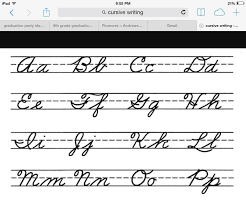 iPad 9:50 PM 21%
cursive writing
graduation party ide... 8th grade graduatio... Gmail cursive writing -...
Aa Bb Cc Dd
Ee Ff Gg Hh
Ii Jj Kk Ll
Mm Nn Oo Pp